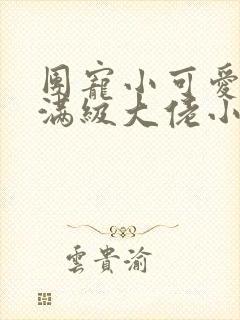 團寵小可愛
滿級大佬小
雲貴渝